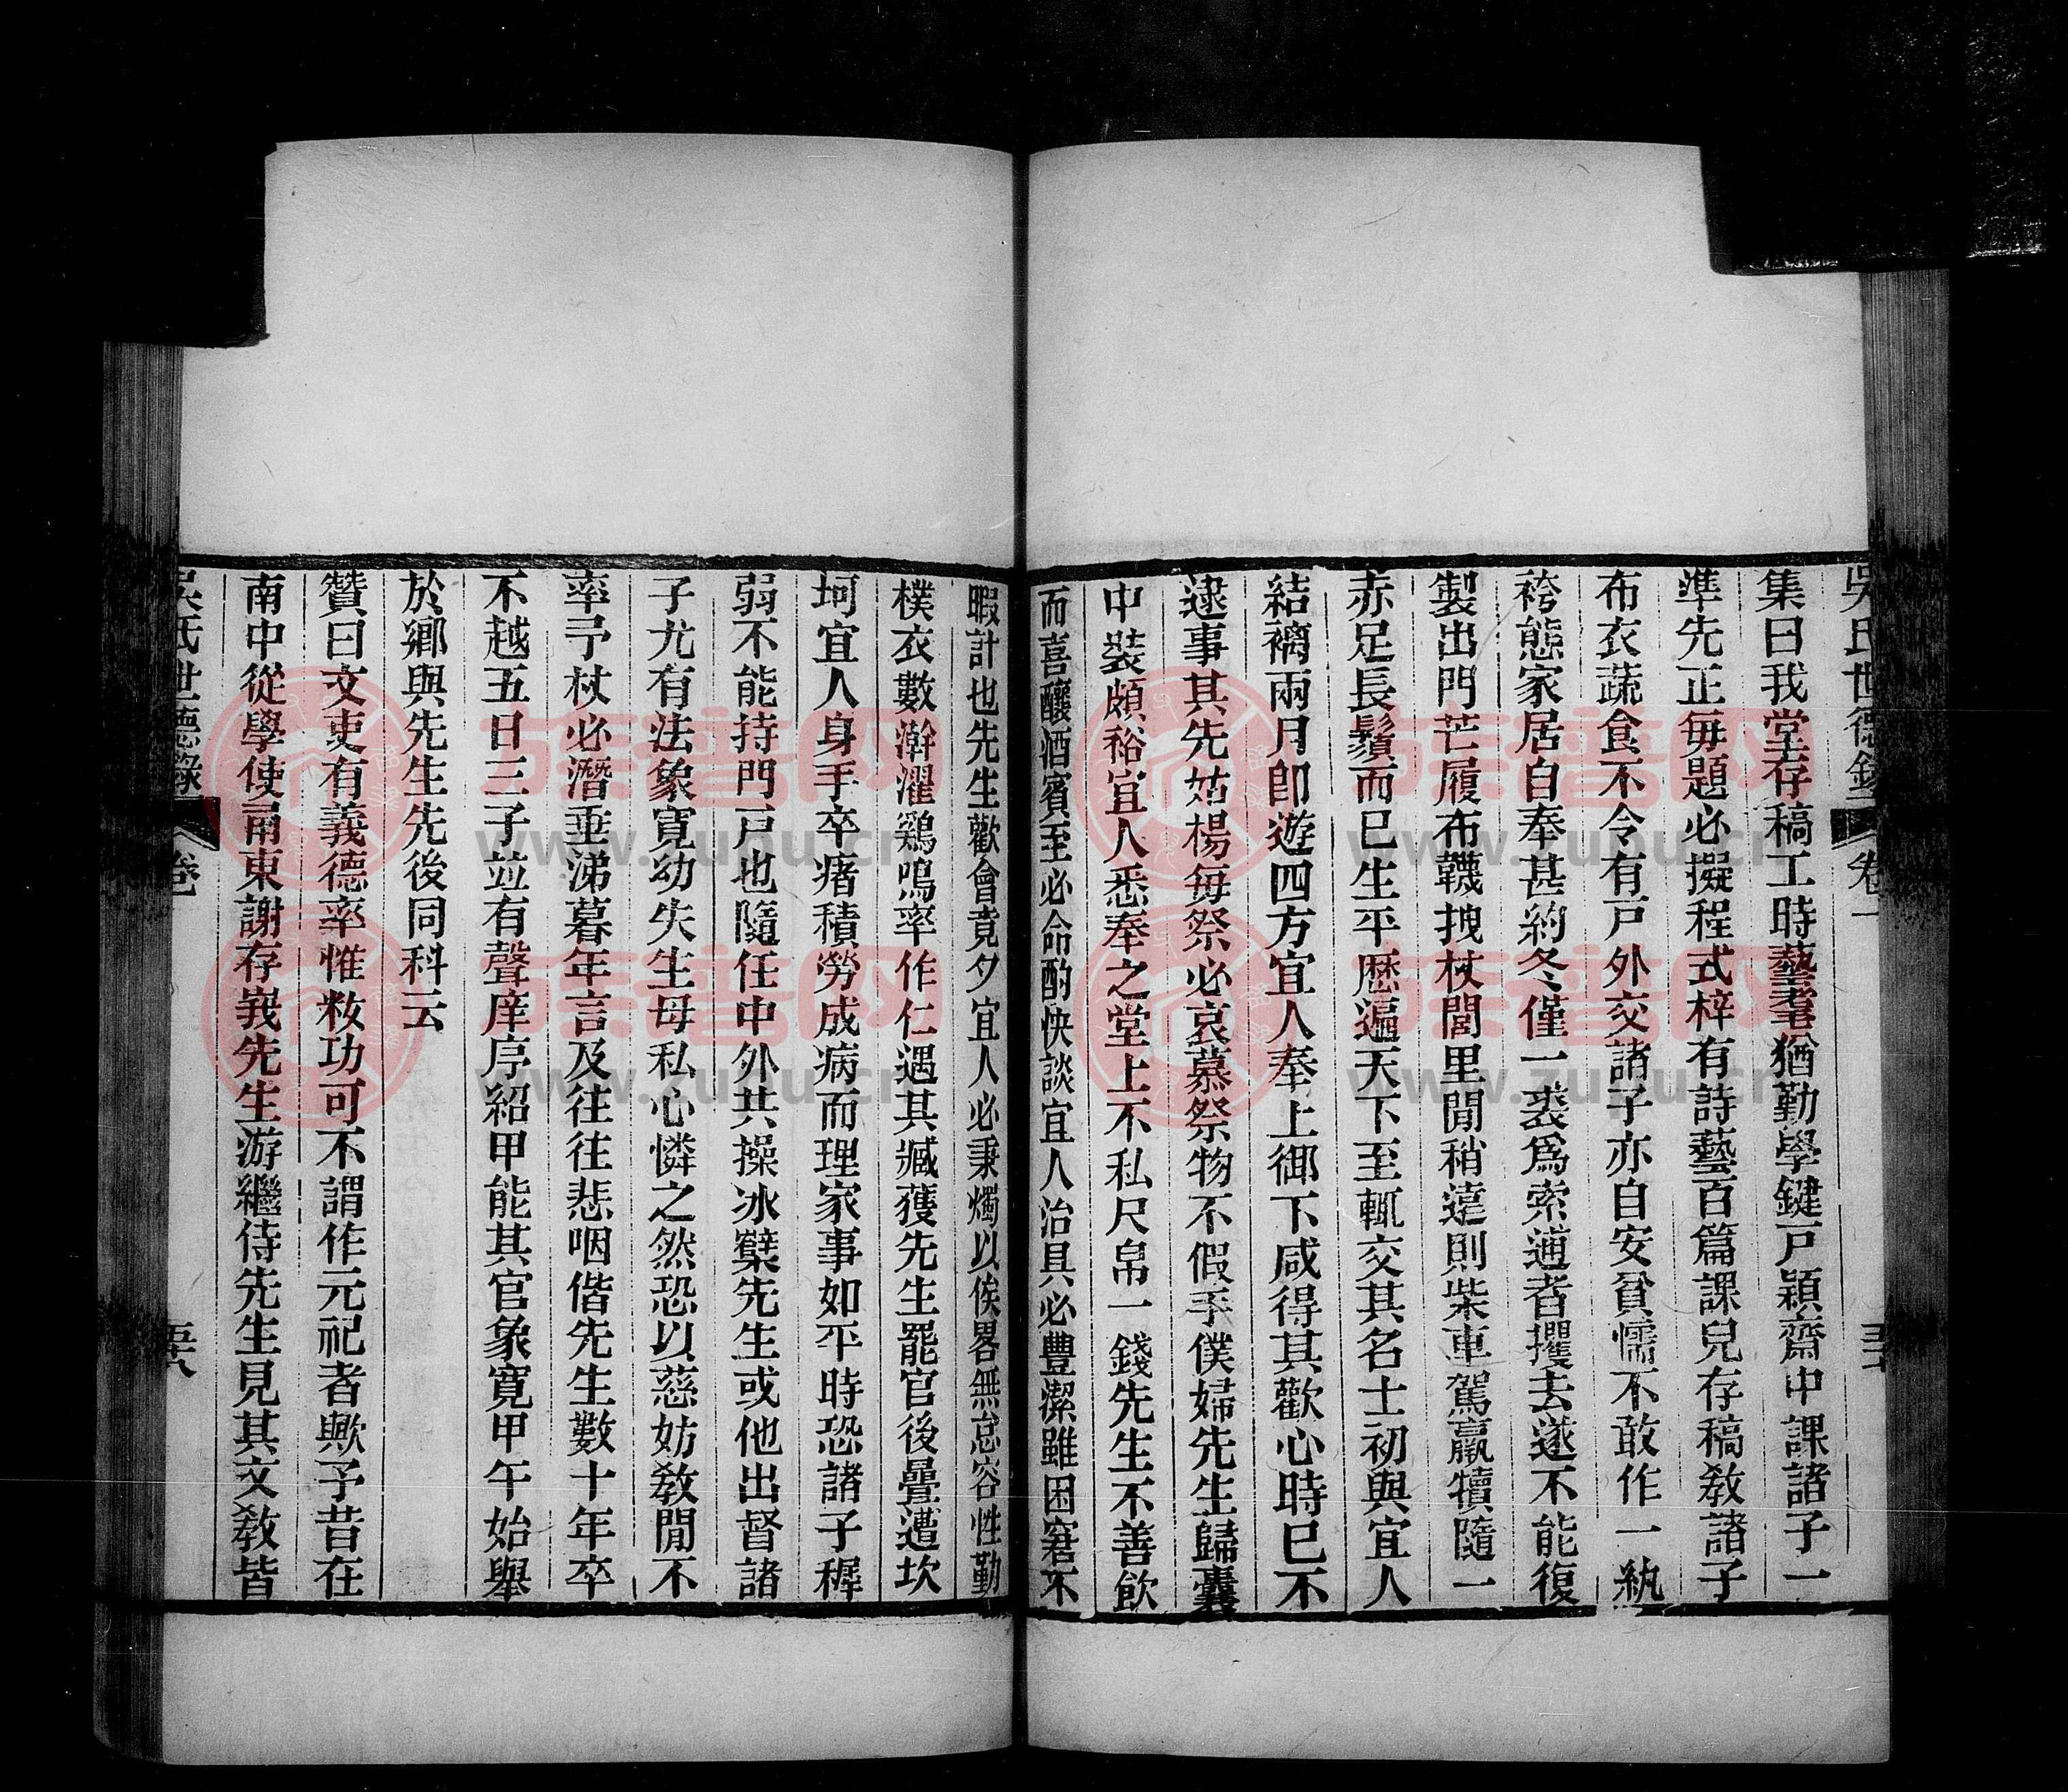 吳氏世德錄 卷一
集曰我堂存稿工時藝耄猶勤學鍵戸穎齋中課諸子一
準先正每題必擬程式梓有詩藝百篇課兒存稿敎諸子
布衣蔬食不令有戸外交諸子亦自安貧懦不敢作一紈
袴態家居自奉甚約冬僅一裘爲索逋者攫去遂不能復
製出門芒履布韈拽杖閭里閒稍遠則柴車駕羸犢隨一
赤足長鬚而已生平歷遍天下至輒交其名士初與宜人
結褵兩月卽遊四方宜人奉上御下咸得其歡心時已不
逮事其先姑楊每祭必哀慕祭物不假手僕婦先生歸囊
中裝頗裕宜人悉奉之堂上不私尺帛一錢先生不善飲
而喜釀酒賓至必命酌快談宜人治具必豐潔雖困窘不
暇計也先生歡會竟夕宜人必秉燭以俟畧無怠容性勤
樸衣數澣濯鷄鳴率作仁遇其臧獲先生罷官後疊遭坎
坷宜人身手卒瘏積勞成病而理家事如平時恐諸子穉
弱不能持門戸也隨任中外共操冰櫱先生或他出督諸
子尤有法象寬幼失生母私心憐之然恐以慈妨敎閒不
率予杖必潛垂涕暮年言及往往悲咽偕先生數十年卒
不越五日三子竝有聲庠序紹甲能其官象寬甲午始舉
於鄉與先生先後同科云
贊曰文吏有義德卒惟敉功可不謂作元祀者歟予昔在
南中從學使甬東謝存峩先生游繼侍先生見其文敎皆
吳氏世德錄 卷一 五十八
族譜网
www.zupu.cn
族譜网
www.zupu.cn
族譜网
www.zupu.cn
族譜网
www.zupu.cn